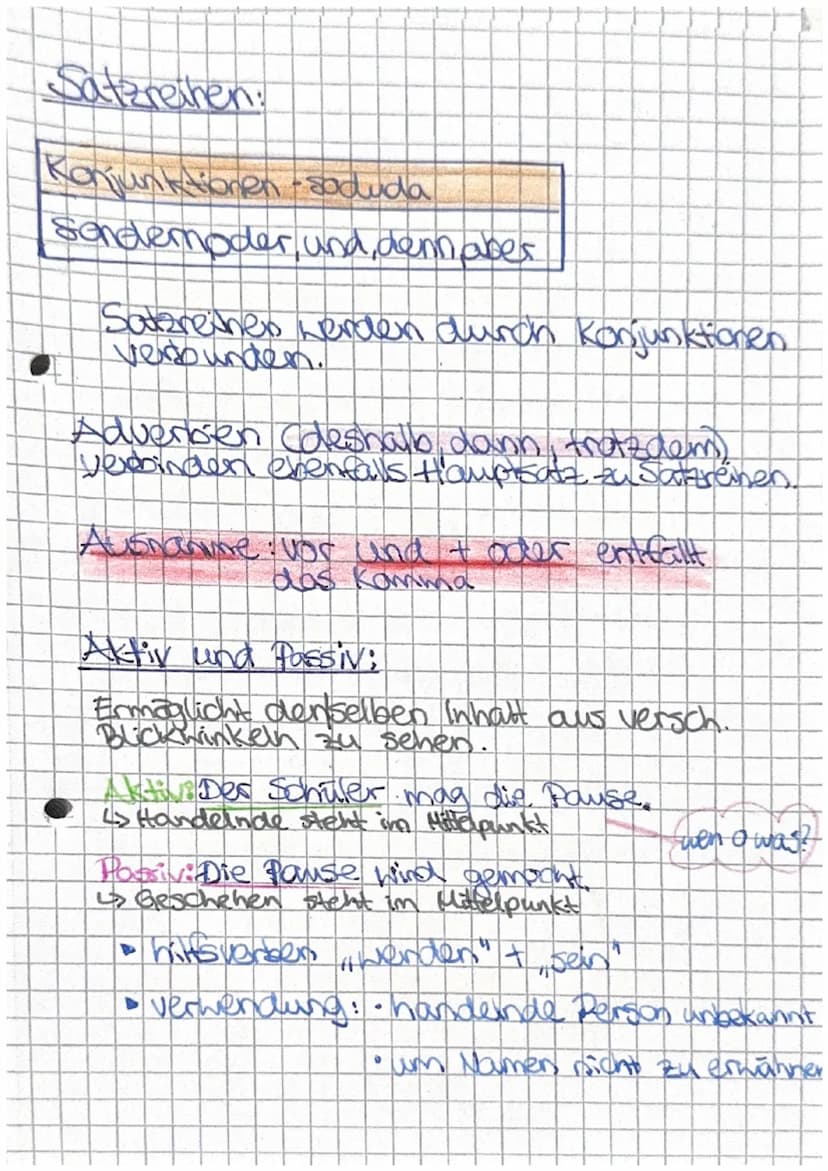 Satzreihen:
Konjunktionen - soduda
sondern, oder, und, denn, aber
Satzreihen werden durch Konjunktionen
verbunden.
Adverbien (deshalb, dann, trotzdem)
verbinden ebenfalls Hauptsatz zu Satzreihen.
Ausnahme: vor und + oder entfällt
das Komma
Aktiv und Passiv:
Ermöglicht denselben Inhalt aus versch.
Blickwinkeln zu sehen.
Aktiv: Der Schüler mag die Pause.
↳ Handelnde steht im Mittelpunkt
wen o was?
Passiv: Die Pause wird gemocht.
↳ Geschehen steht im Mittelpunkt
▸ hilfsverben „werden" + „sein"
▸ verwendung: • handelnde Person unbekannt
• um Namen nicht zu erwähnen